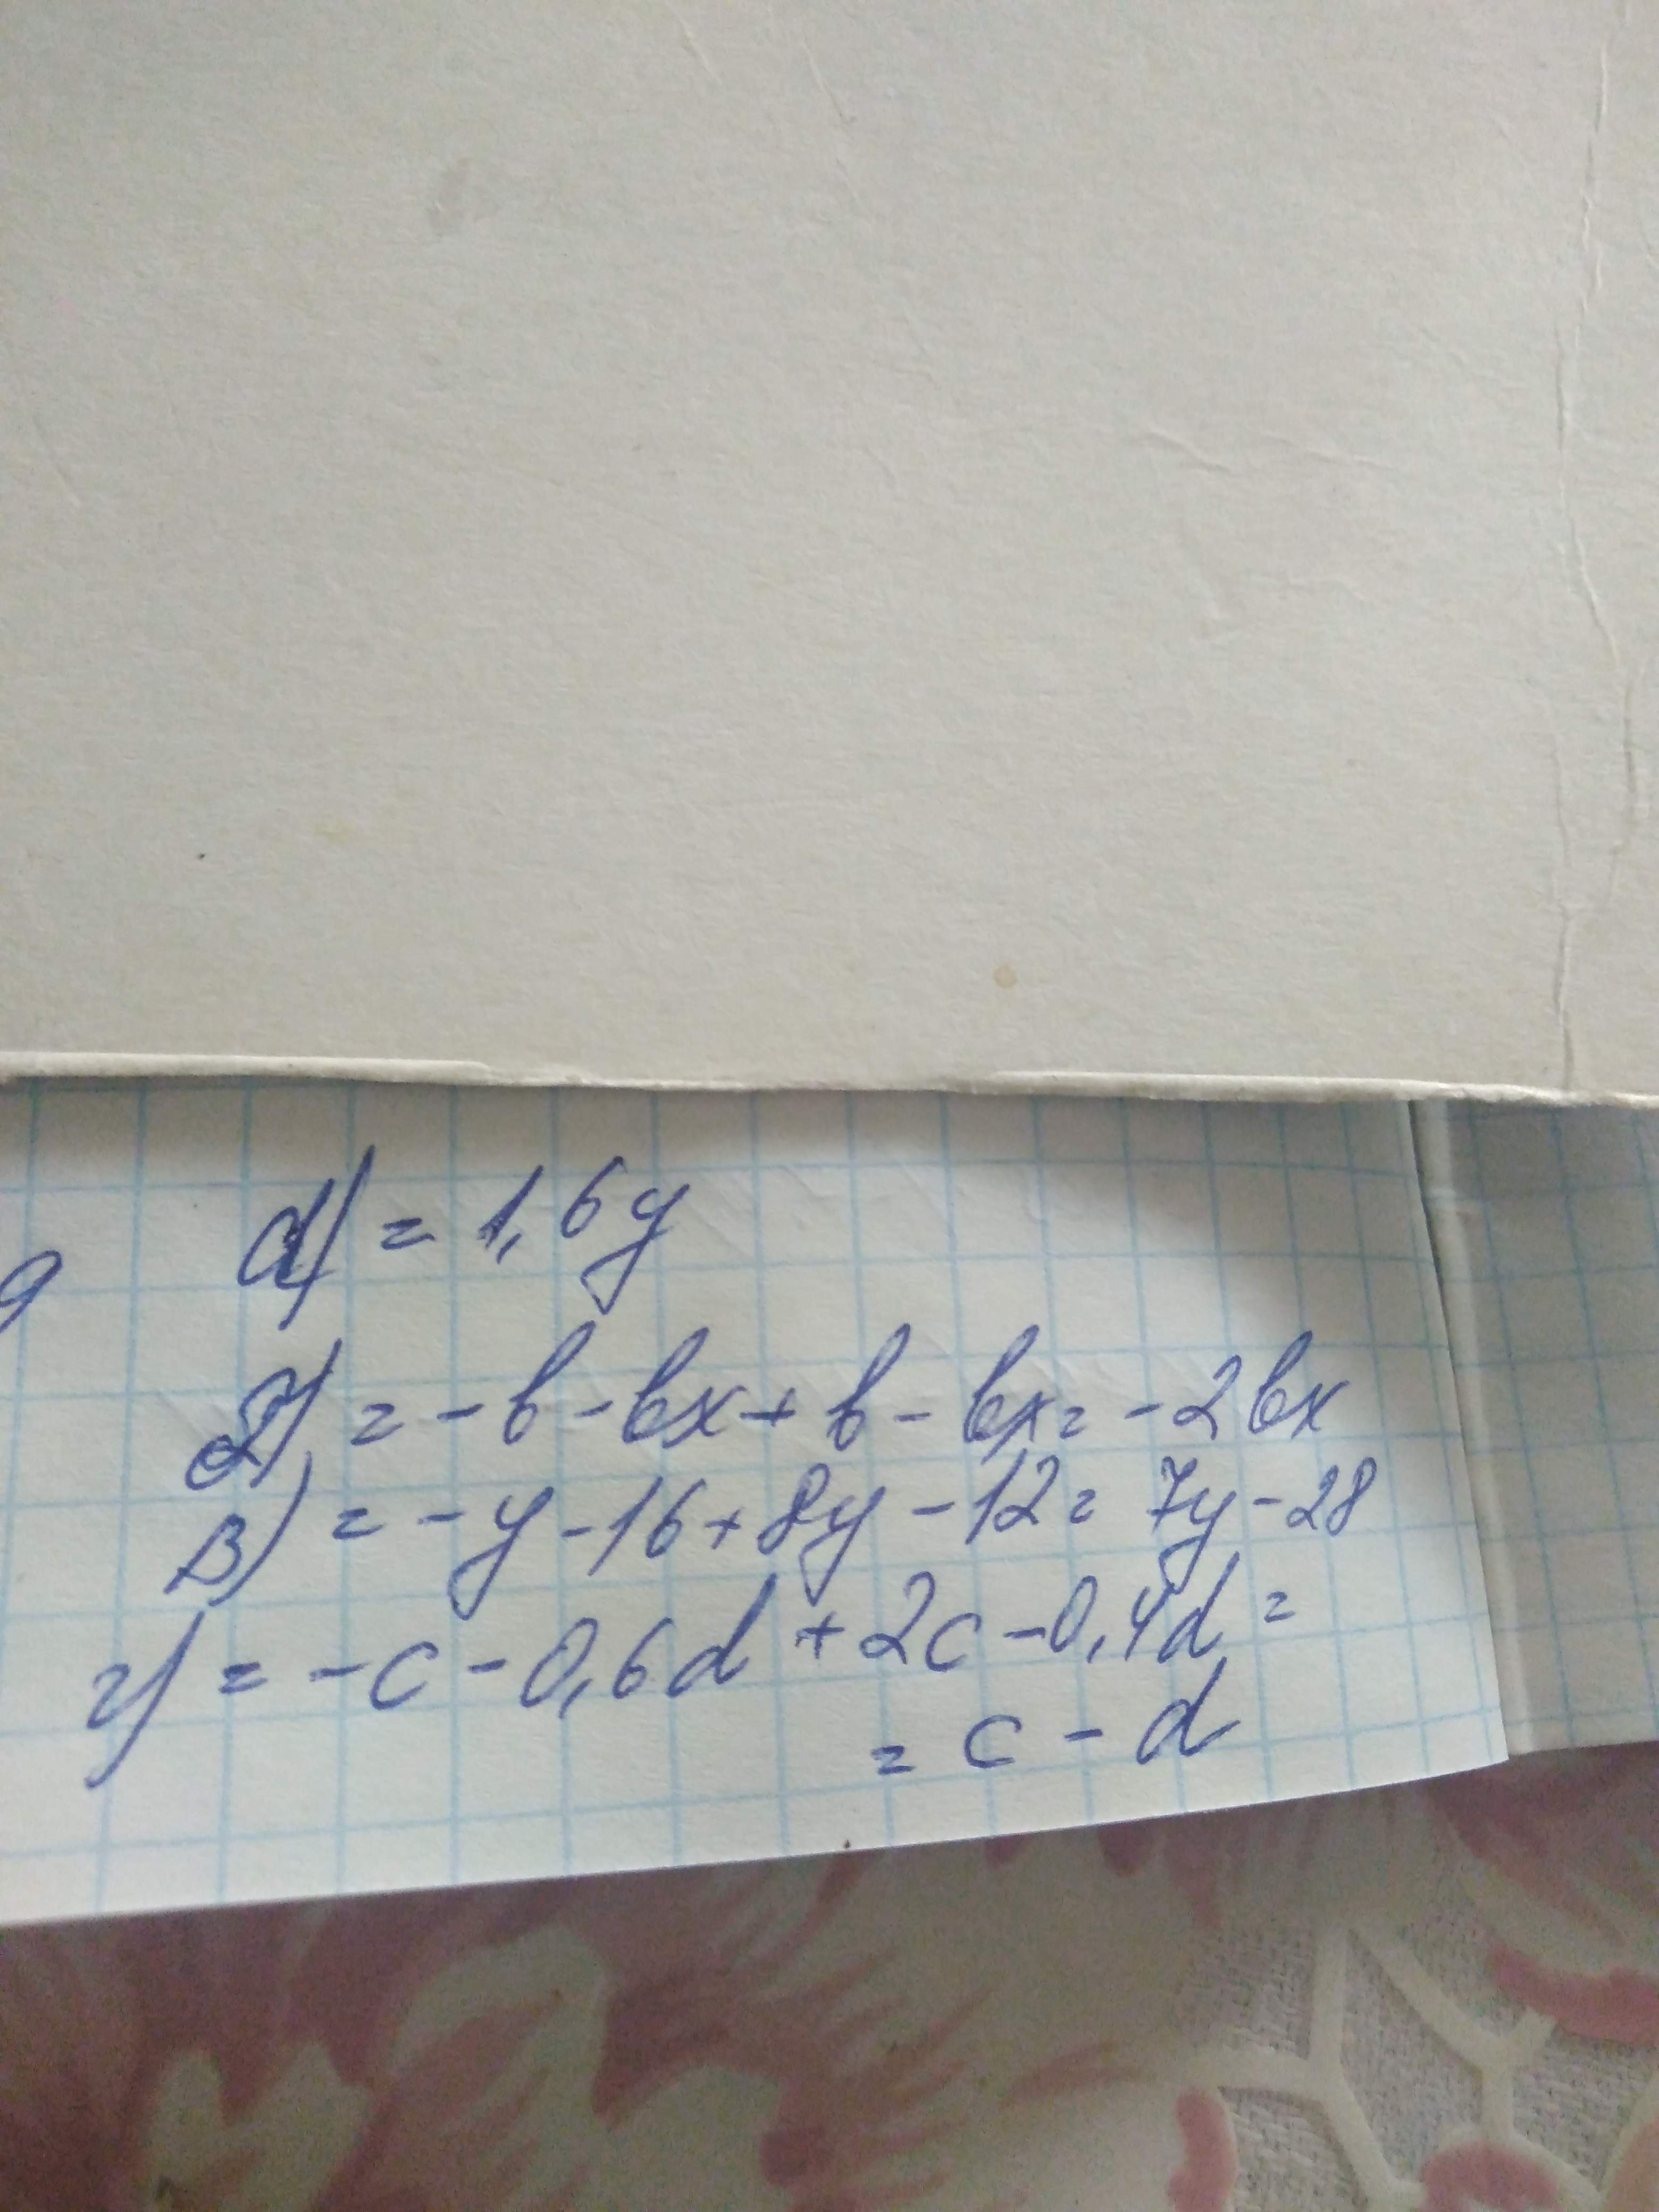 9 а) = 1,6y
б) = -b - bx + b - bx = -2bx
в) = -y - 16 + 8y - 12 = 7y - 28
г) = -c - 0,6d + 2c - 0,4d =
= c - d